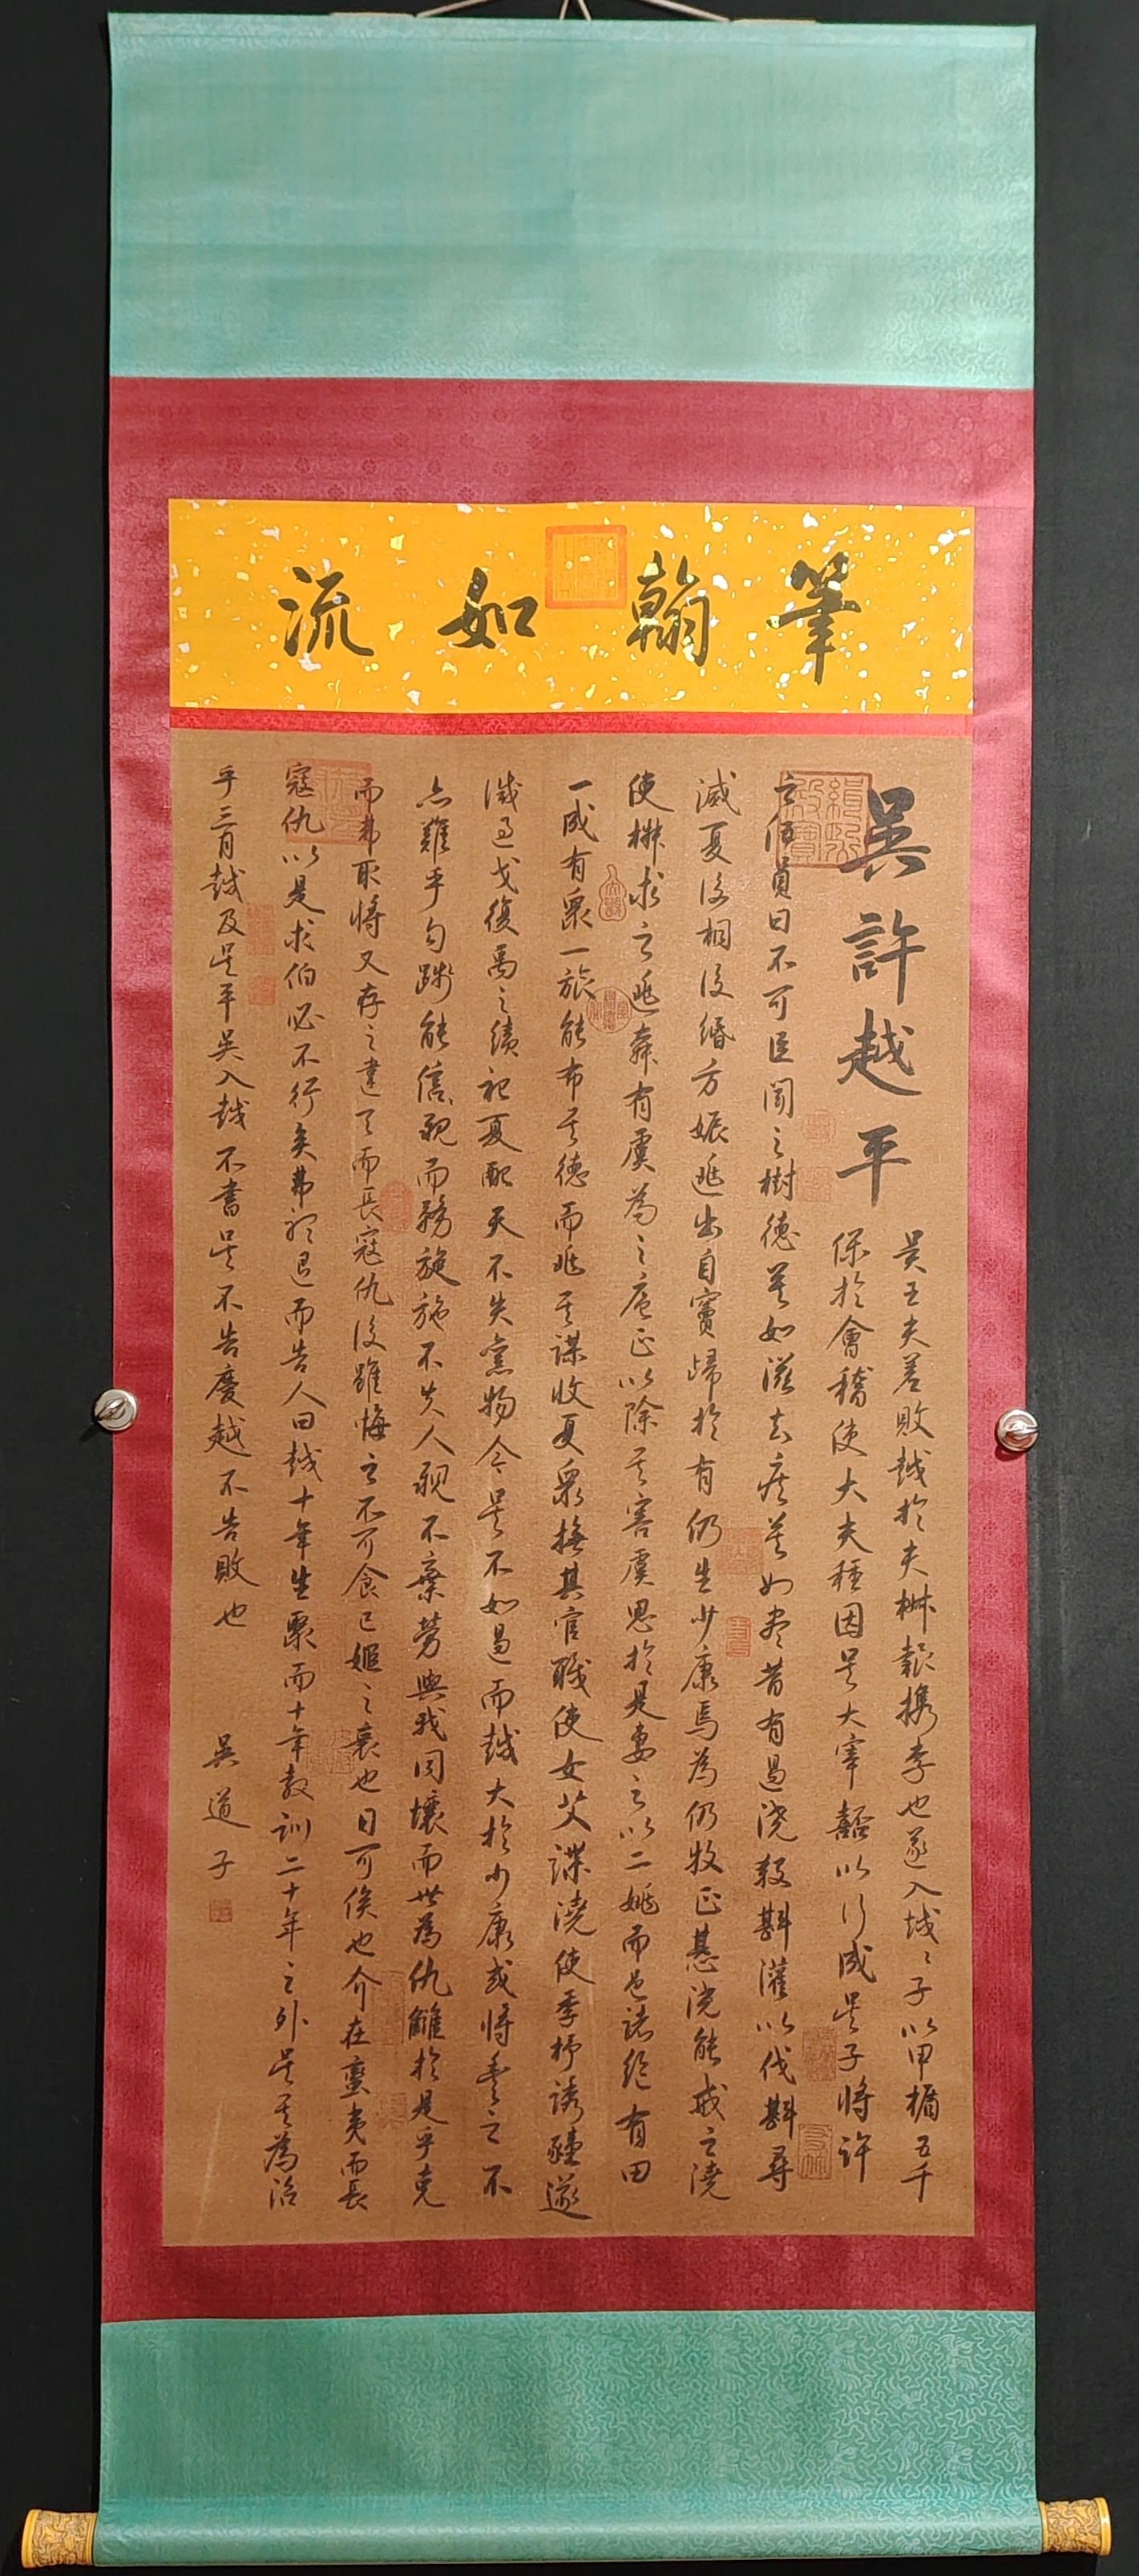 筆翰如流
吳許越平
吳王夫差敗越於夫椒報檇李也遂入越〻子以甲楯五千
保於會稽使大夫種因吳大宰嚭以行成吳子將許
之伍員曰不可臣聞之樹德莫如滋去疾莫如盡昔有過澆殺斟灌以伐斟尋
滅夏后相后緡方娠逃出自竇歸於有仍生少康焉為仍牧正惎澆能戒之澆
使椒求之逃奔有虞為之庖正以除其害虞思於是妻之以二姚而邑諸綸有田
一成有眾一旅能布其德而兆其謀收夏眾撫其官職使女艾諜澆使季杼誘豷遂
滅過戈復禹之績祀夏配天不失舊物今吳不如過而越大於少康或將豐之不
亦難乎勾踐能信親而務施施不失人親不棄勞與我同壤而世為仇讎於是乎克
而弗取將又存之違天而長寇仇後雖悔之不可食已姬之衰也日可俟也介在蠻夷而長
寇仇以是求伯必不行矣弗聽退而告人曰越十年生聚而十年教訓二十年之外吳其為沼
乎三月越及吳平吳入越不書吳不告慶越不告敗也
吳道子
緝熙殿寶